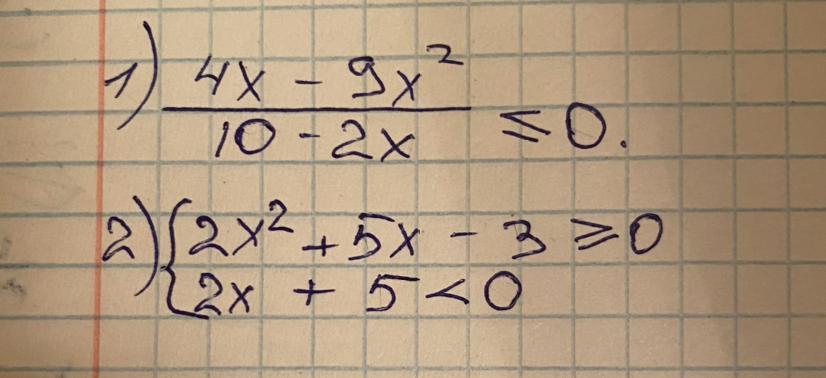 1) (4x - 9x²)/(10 - 2x) ≤ 0.
2) { 2x² + 5x - 3 ≥ 0
2x + 5 < 0